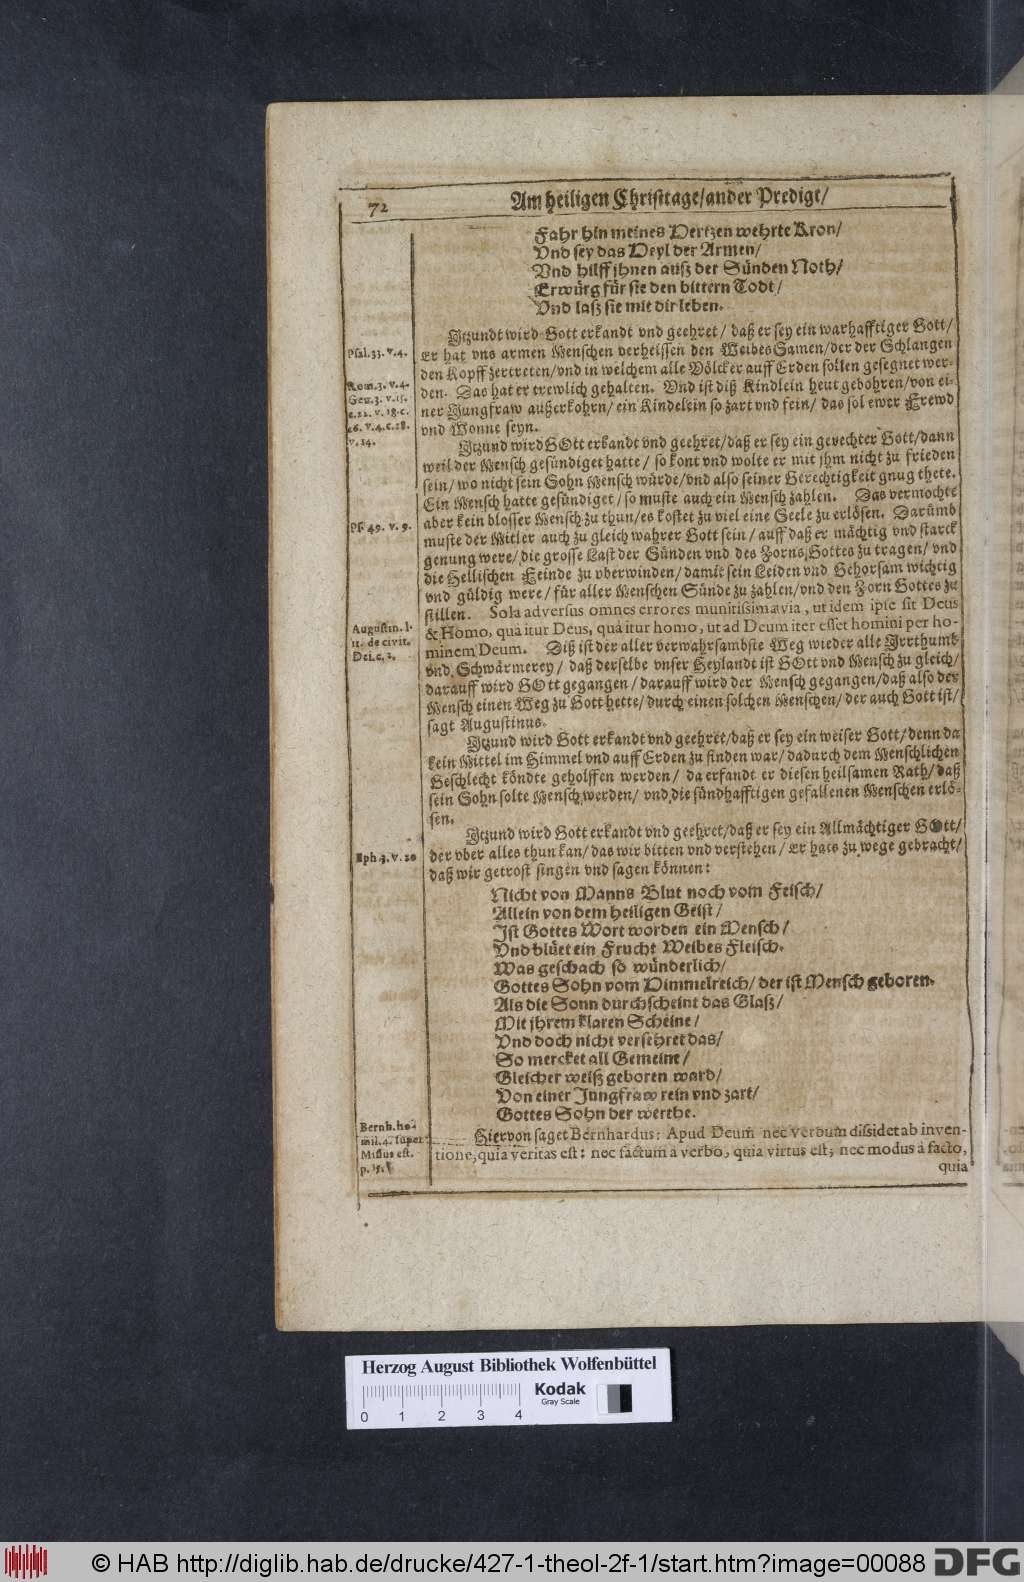 72
Am heiligen Christtage/ander Predigt/
Fahr hin meines Hertzen wehrte Kron/
Vnd sey das Heyl der Armen/
Vnd hilff jhnen auß der Sünden Noth/
Erwürg für sie den bittern Todt/
Vnd laß sie mit dir leben.
Psal. 33. v. 4.
Rom. 3. v. 4.
Gen. 3. v. 15.
c. 22. v. 18. c.
26. v. 4. c. 28.
v. 14.
Jtzundt wird Gott erkandt vnd geehret/ daß er sey ein warhafftiger Gott/
Er hat vns armen Menschen verheissen den Weibes Samen/der der Schlangen
den Kopff zertreten/vnd in welchem alle Völcker auff Erden sollen gesegnet wer-
den. Das hat er trewlich gehalten. Vnd ist diß Kindlein heut gebohren/von ei-
ner Jungfraw außerkohrn/ ein Kindelein so zart vnd fein/ das sol ewer Frewd
vnd Wonne seyn.
Jtzund wird GOtt erkandt vnd geehret/daß er sey ein gerechter Gott/dann
weil der Mensch gesündiget hatte/ so kont vnd wolte er mit jhm nicht zu frieden
sein/ wo nicht sein Sohn Mensch würde/vnd also seiner Gerechtigkeit gnug thete.
Ein Mensch hatte gesündiget/so muste auch ein Mensch zahlen. Das vermochte
Ps. 49. v. 9.
aber kein blosser Mensch zu thun/es kostet zu viel eine Seele zu erlösen. Darümb
muste der Mitler auch zu gleich wahrer Gott sein/ auff daß er mächtig vnd starck
genung were/die grosse Last der Sünden vnd des Zorns Gottes zu tragen/ vnd
die Hellischen Feinde zu vberwinden/damit sein Leiden vnd Gehorsam wichtig
vnd güldig were/ für aller Menschen Sünde zu zahlen/vnd den Zorn Gottes zu
stillen. Sola adversus omnes errores munitissima via, ut idem ipse sit Deus
Augustin. l.
11. de civit.
Dei. c. 2.
& Homo, quà itur Deus, quà itur homo, ut ad Deum iter esset homini per ho-
minem Deum. Diß ist der aller verwahrsambste Weg wieder alle Jrrthumb
vnd Schwärmerey/ daß derselbe vnser Heylandt ist GOtt vnd Mensch zu gleich/
darauff wird GOtt gegangen/darauff wird der Mensch gegangen/daß also der
Mensch einen Weg zu Gott hette/durch einen solchen Menschen/der auch Gott ist/
sagt Augustinus.
Jtzund wird Gott erkandt vnd geehret/daß er sey ein weiser Gott/denn da
kein Mittel im Himmel vnd auff Erden zu finden war/dadurch dem Menschlichen
Geschlecht köndte geholffen werden/ da erfandt er diesen heilsamen Rath/daß
sein Sohn solte Mensch werden/ vnd die sündhafftigen gefallenen Menschen erlö-
sen.
Jtzund wird Gott erkandt vnd geehret/daß er sey ein Allmächtiger GOtt/
Eph 3. v. 20
der vber alles thun kan/das wir bitten vnd verstehen/ Er hats zu wege gebracht/
daß wir getrost singen vnd sagen können:
Nicht von Manns Blut noch vom Feisch/
Allein von dem heiligen Geist/
Jst Gottes Wort worden ein Mensch/
Vnd blüet ein Frucht Weibes Fleisch.
Was geschach so wünderlich/
Gottes Sohn vom Himmelreich/ der ist Mensch geboren.
Als die Sonn durchscheint das Glaß/
Mit jhrem klaren Scheine/
Vnd doch nicht versehret das/
So mercket all Gemeine/
Gleicher weiß geboren ward/
Von einer Jungfraw rein vnd zart/
Gottes Sohn der werthe.
Bernh. ho-
mil. 4. super
Missus est.
p. 15.
Hiervon saget Bernhardus: Apud Deum nec verbum dissidet ab inven-
tione, quia veritas est: nec factum à verbo, quia virtus est; nec modus à facto,
quia
Herzog August Bibliothek Wolfenbüttel
Kodak
Gray Scale
0 1 2 3 4
© HAB http://diglib.hab.de/drucke/427-1-theol-2f-1/start.htm?image=00088
DFG